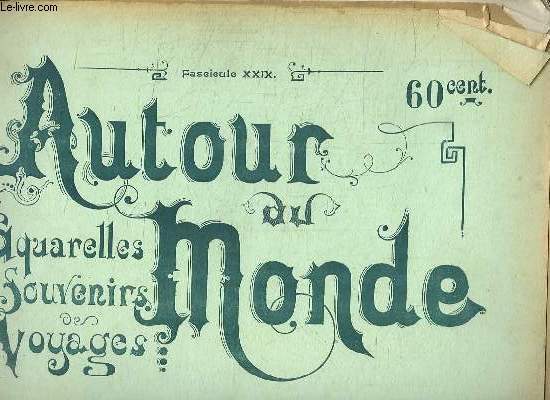 Le-livre.com
Fascicule XXIX.
60 cent.
Autour
du
Monde
Aquarelles
Souvenirs
de
Voyages